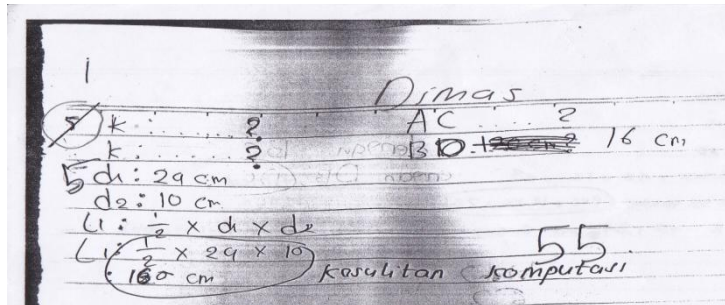 i
Dimas
5 K : ....... ? AC ..... ?
K : ...... ? BD : 16 cm
5 d1 : 29 cm
d2 : 10 cm
L : 1/2 x d1 x d2
L : 1/2 x 29 x 10
: 160 cm
55
Kesulitan komputasi